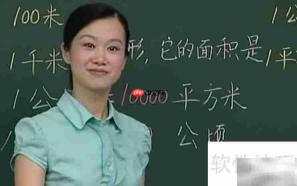 100米
1公
1千米 形,它的面积是 1平
1公 =10000平方米
公顷
软件